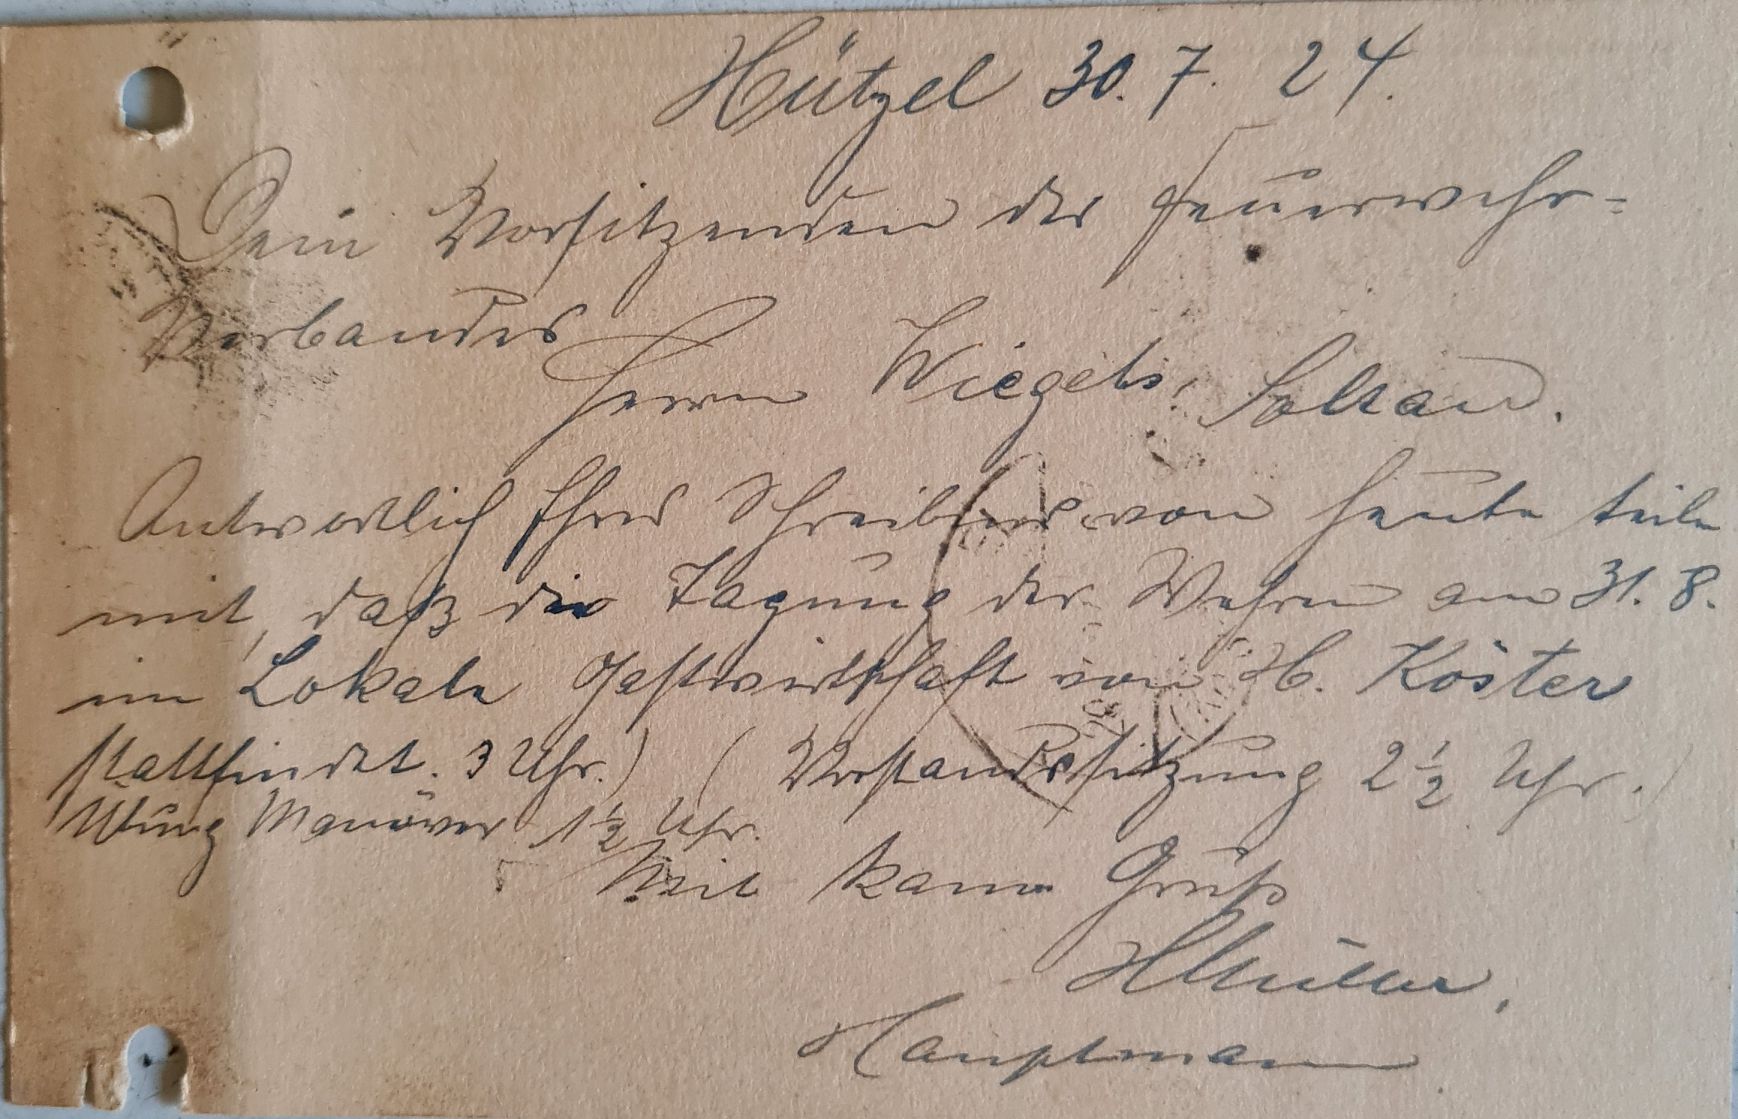 Hützel 30. 7. 24.
Dem Vorsitzenden des Feuerwehr=
Verbandes
Herrn Wiegels, Soltau.
Antwortlich Ihres Schreibens von heute teile
mit, daß die Tagung der Wehren am 31. 8.
im Lokale Gastwirtschaft von H. Köster
stattfindet. 3 Uhr.) (Vorstandssitzung 2 1/2 Uhr.)
Übung Manöver 1 1/2 Uhr.
Mit kam. Gruß
HMüller,
Hauptmann